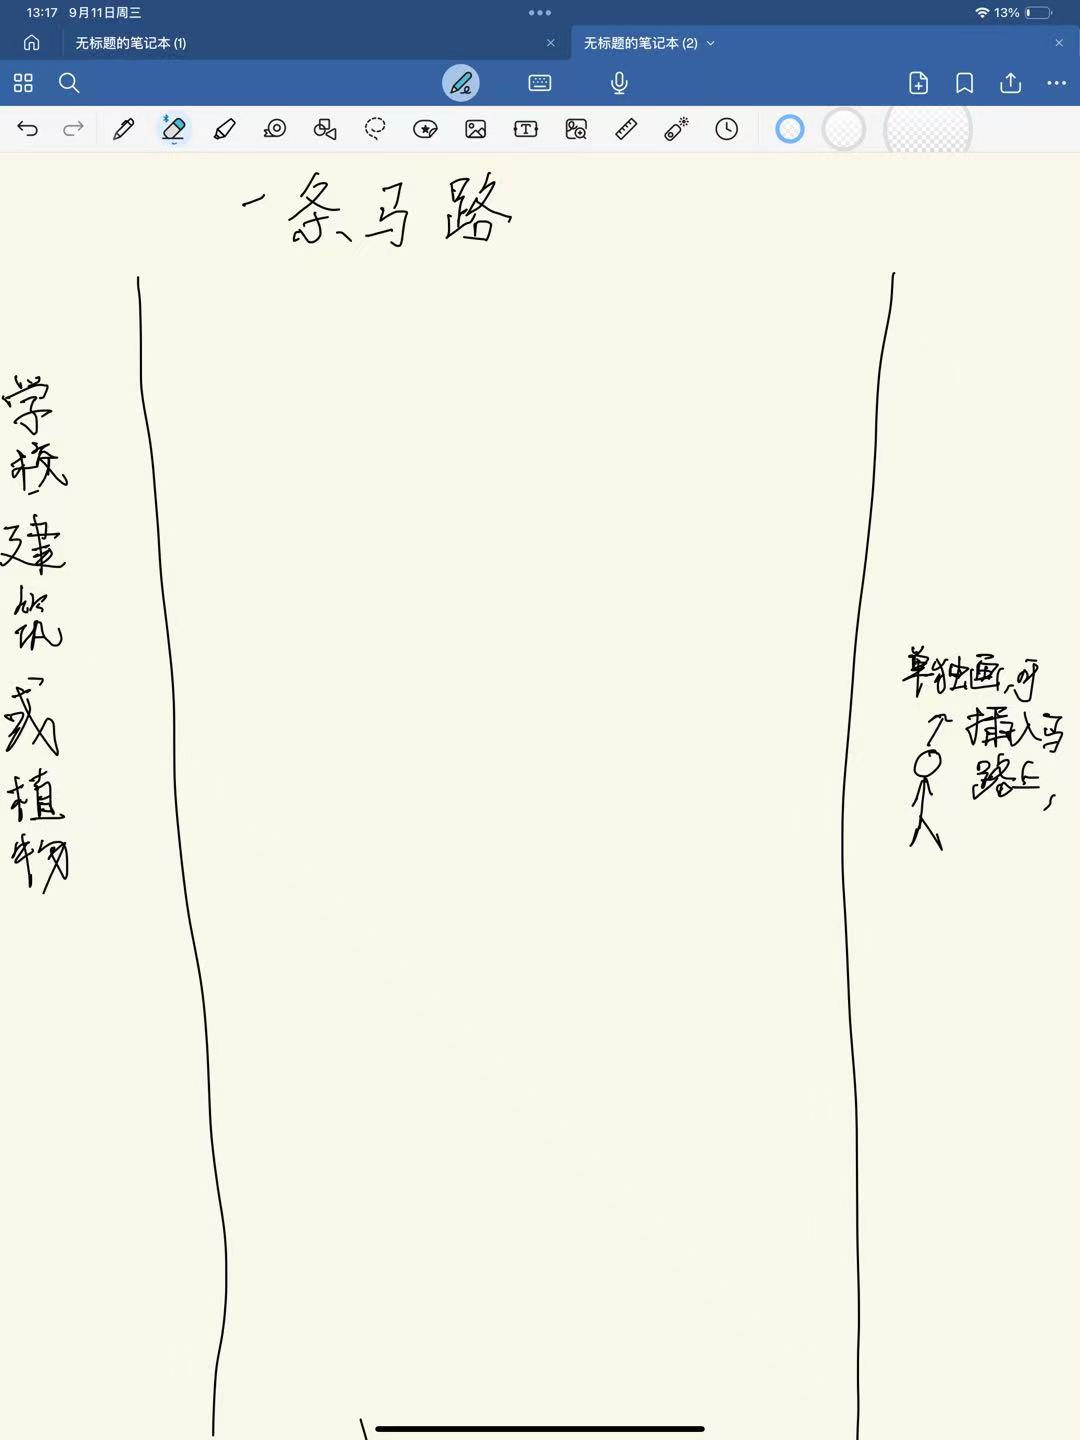 13:17 9月11日周三
13%
无标题的笔记本 (1)
无标题的笔记本 (2)
一条马路
学校建筑或植物
单独画,可
插入马
路上,